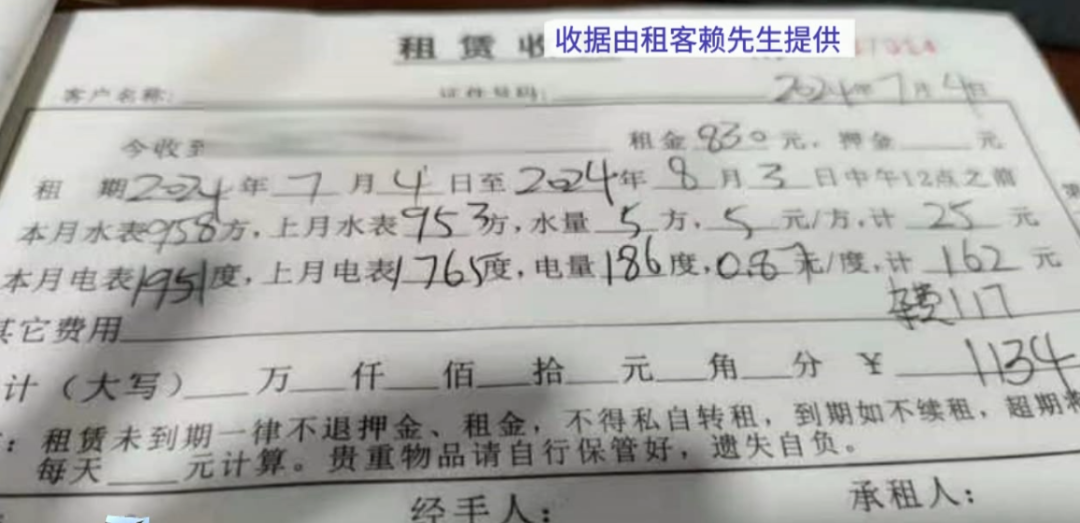 租赁收
收据由租客赖先生提供
客户名称: 证件号码: 2024年7月4日
今收到 租金830元，押金 元
租 期2024年7月4日至2024年8月3日中午12点之前
本月水表958方，上月水表953方，水量5方，5元/方，计25元
本月电表1951度，上月电表1765度，电量186度，0.87元/度，计162元
杂费117
其它费用
计（大写） 万 仟 佰 拾 元 角 分 ¥ 1134
：租赁未到期一律不退押金、租金，不得私自转租，到期如不续租，超期将
每天 元计算。贵重物品请自行保管好，遗失自负。
经手人： 承租人：